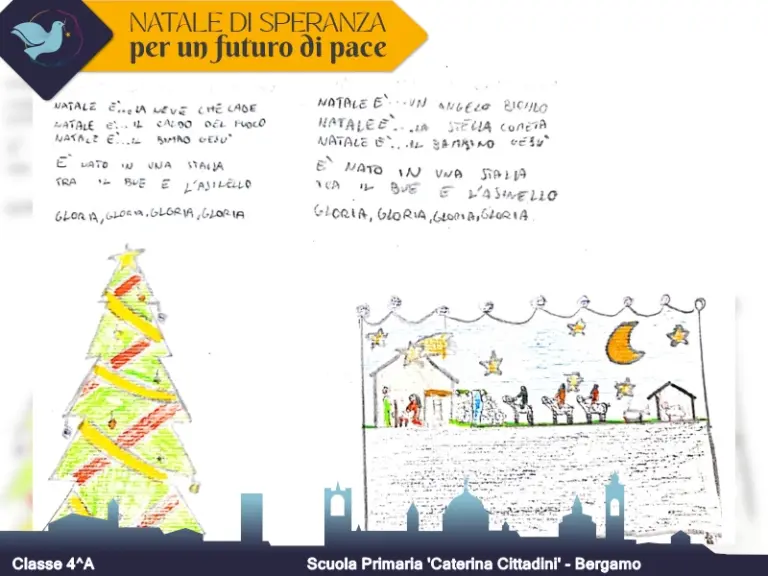 NATALE DI SPERANZA
per un futuro di pace
NATALE È...LA NEVE CHE CADE
NATALE È...IL CALDO DEL FUOCO
NATALE È...IL BIMBO GESU'
E' NATO IN UNA STALLA
TRA IL BUE E L'ASINELLO
GLORIA, GLORIA, GLORIA, GLORIA
NATALE E'...UN ANGELO
NATALE E'...LA STELLA COMETA
NATALE E'...IL BAMBINO GESU'
E' NATO IN UNA STALLA
TRA IL BUE E L'ASINELLO
GLORIA, GLORIA, GLORIA, GLORIA
Classe 4^A
Scuola Primaria 'Caterina Cittadini' - Bergamo